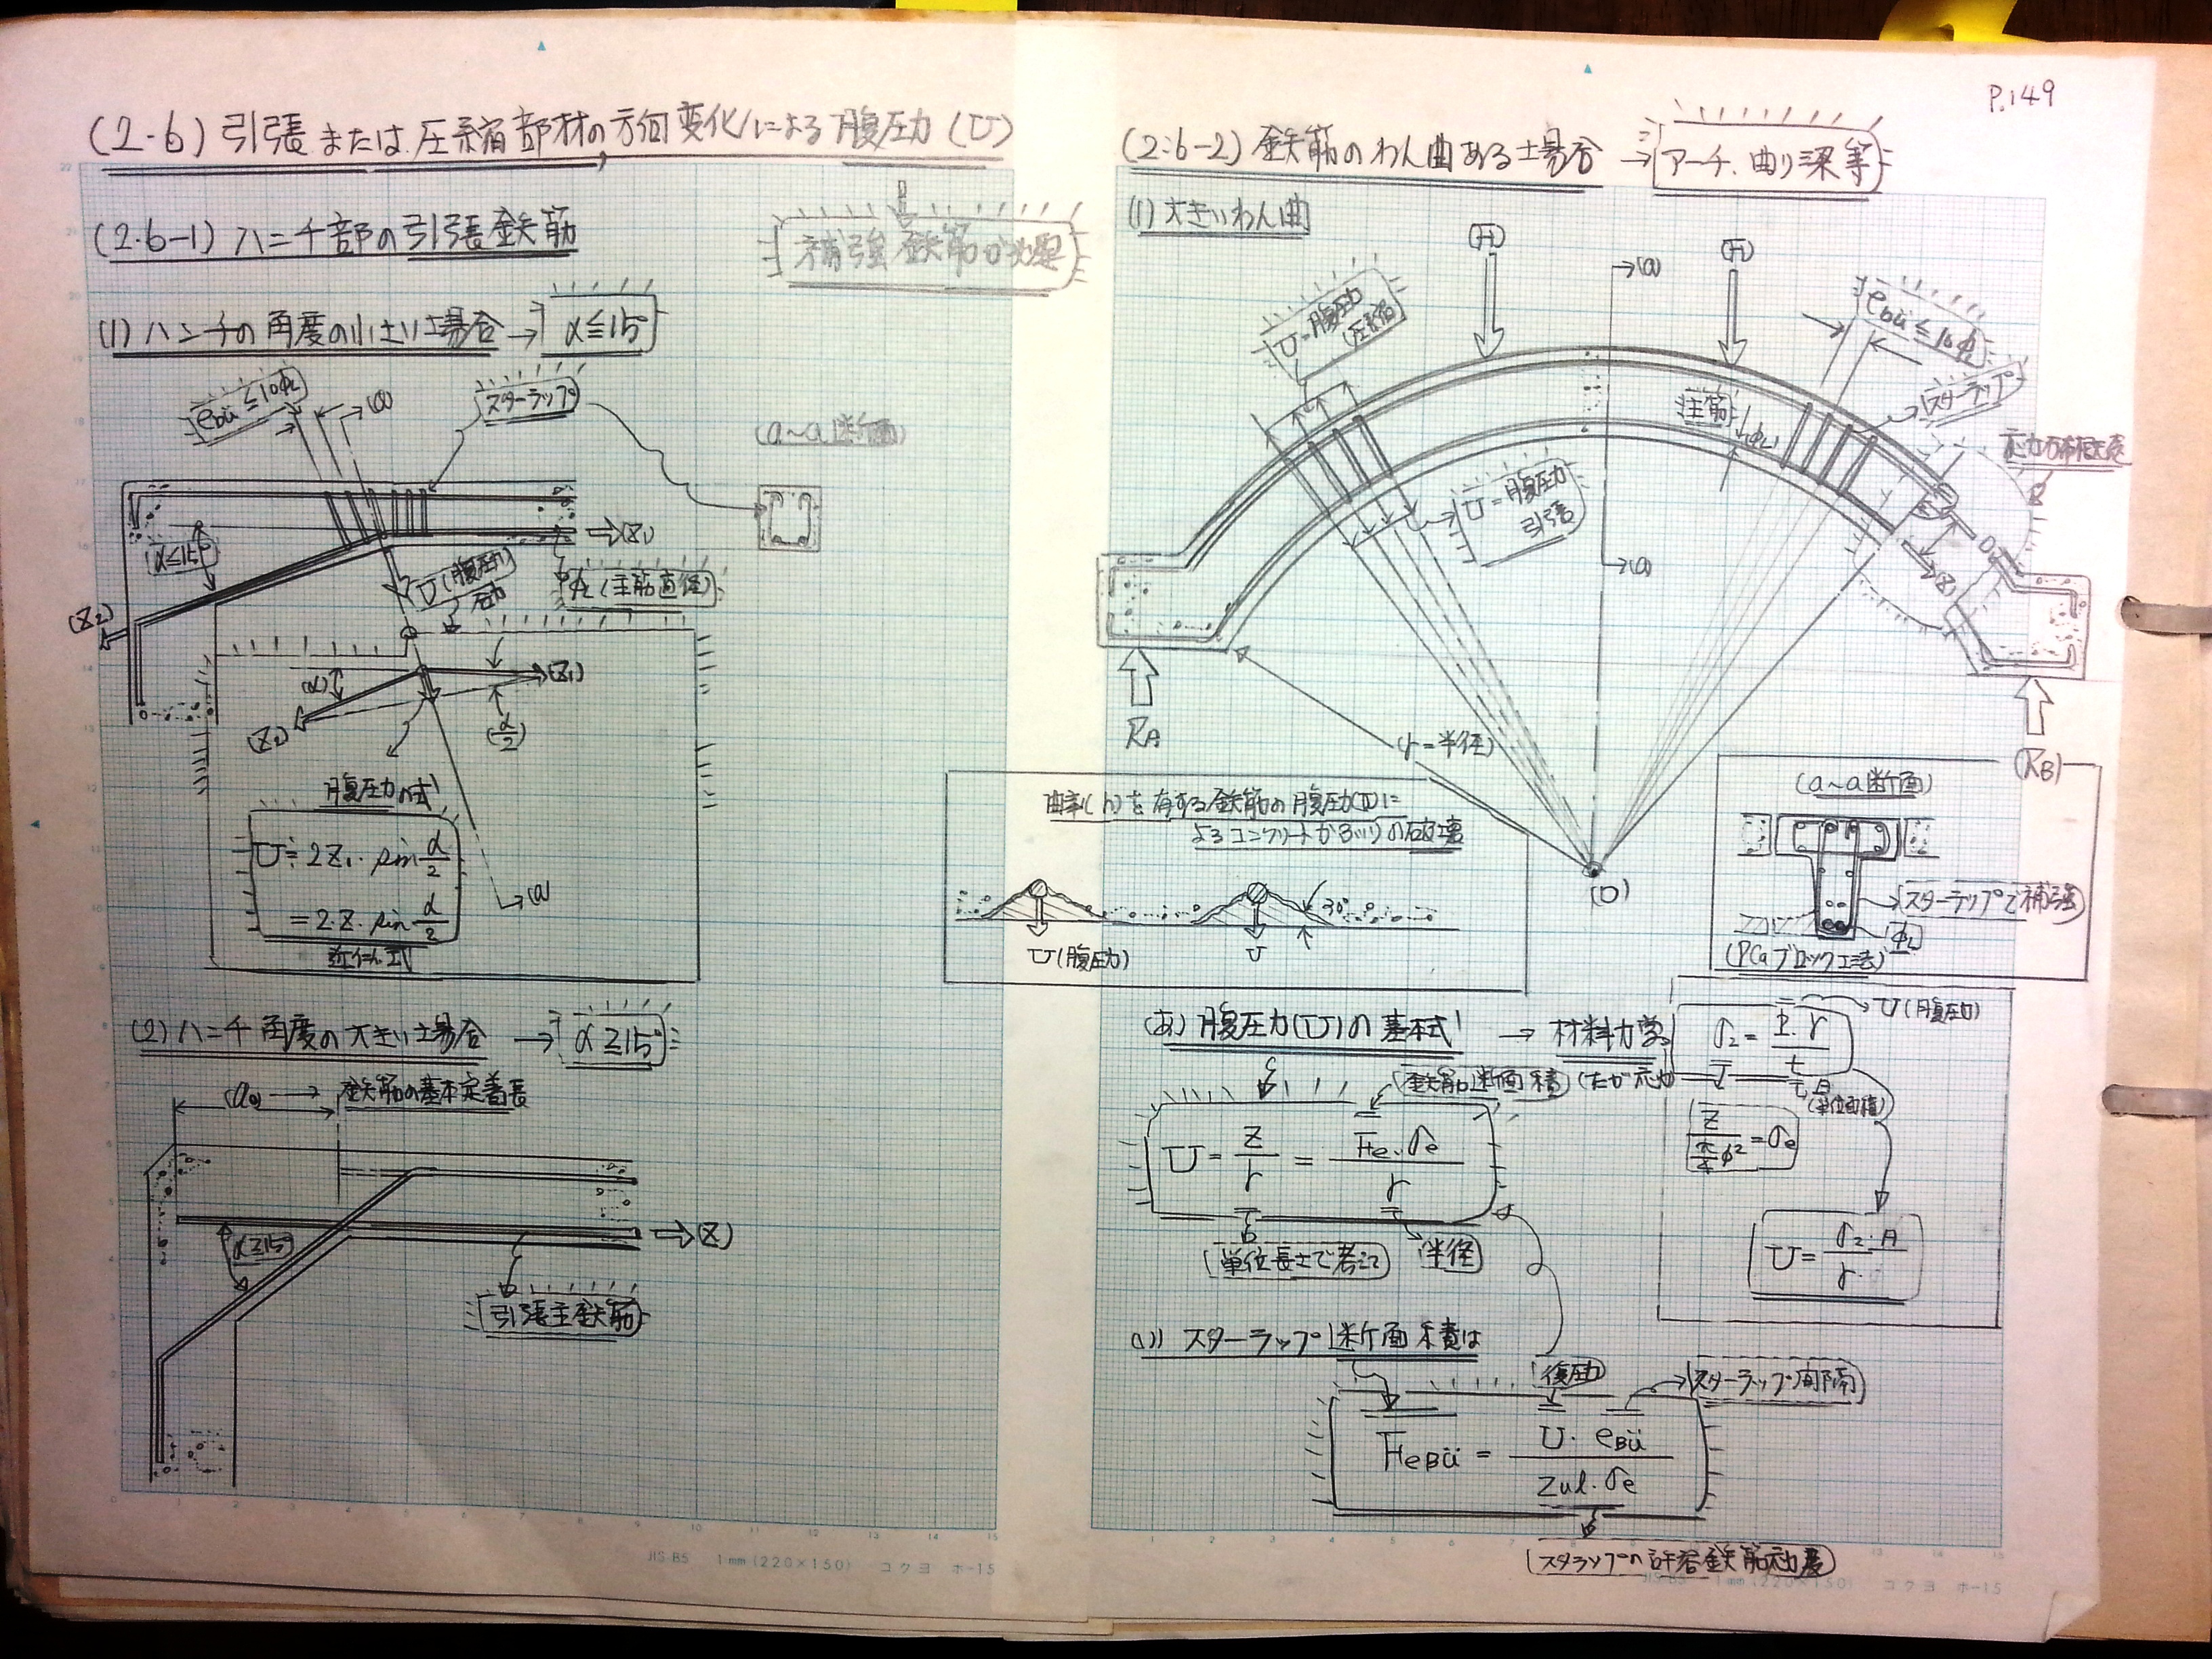 P.149
(2-6) 引張または圧縮部材の方向変化による腹圧力 (U)
(2.6-1) ハンチ部の引張鉄筋
補強鉄筋が必要
(1) ハンチの角度の小さい場合 → α≦15°
eBü≦10φL
(a)
スターラップ
(a~a断面)
α≦15°
→(Z1)
(Z2)
U (腹圧力)
φL (主筋直径)
(α)
(Z1)
(Z2)
(α/2)
腹圧力の式
U≒2Z1・sin α/2
=2・Z・sin α/2
近似式
→(a)
(2) ハンチ角度の大きい場合 → α≧15°
(a0) → 鉄筋の基本定着長
α≧15°
→(Z)
引張主鉄筋
JIS-B5 1mm(220×150) コクヨ ホ-15
(2.6-2) 鉄筋のわん曲ある場合 → アーチ、曲り梁等
(1) 大きいわん曲
U=腹圧力
(圧縮)
→(a)
eBü≦10φL
スターラップ
主筋
(φL)
U=腹圧力
引張
→(a)
(Z)
RA
(r=半径)
(RB)
(O)
曲率(r)を有する鉄筋の腹圧力(U)に
よるコンクリートかぶりの破壊
30°
U (腹圧力)
U
(a~a断面)
スターラップで補強
φL
(PCaブロック工法)
(あ) 腹圧力(U)の基本式 → 材料力学
鉄筋断面積
U = Z/r = Fe・σe/r
単位長さで考えて
半径
σ2 = P・r/t
U (腹圧力)
(たが応力)
t, A
(単位面積)
Z/(π/4 φ²) = σe
U = σ2・A/r
(い) スターラップ断面積は
復圧力
スターラップ間隔
FeBü = U・eBü/zul・σe
スタラップの許容鉄筋応力度
JIS-B5 1mm(220×150) コクヨ ホ-15